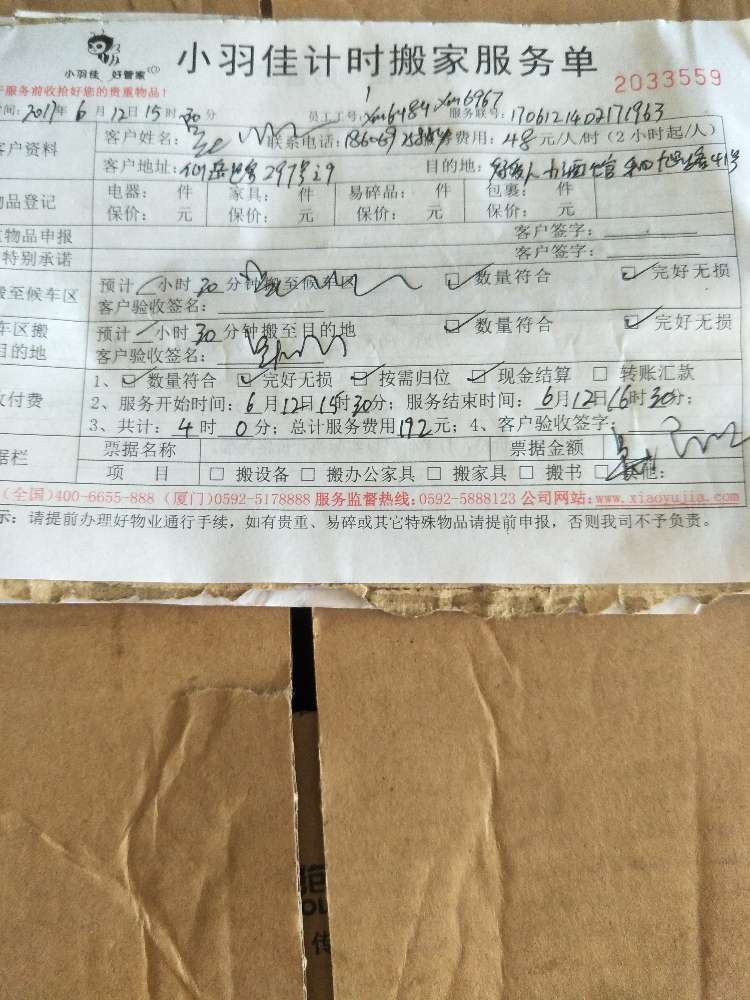 小羽佳 好管家
小羽佳计时搬家服务单
服务前收拾好您的贵重物品!
2033559
间: 2017年 6月 12日 15时 30分 员工工号: xm6484 xm6967 服务联号: 1706121402171963
客户资料 客户姓名: 联系电话: 费用: 48 元/人/时 (2小时起/人)
客户地址: 仙岳路297号 目的地:
物品登记 电器: 件 家具: 件 易碎品: 件 包裹: 件
保价: 元 保价: 元 保价: 元 保价: 元
物品申报 客户签字:
特别承诺 客户签字:
搬至候车区 预计 小时 30 分钟搬至候车区 ☑ 数量符合 ☑ 完好无损
客户验收签名:
车区搬 预计 小时 30 分钟搬至目的地 ☑ 数量符合 ☑ 完好无损
目的地 客户验收签名:
1、☑ 数量符合 ☑ 完好无损 ☑ 按需归位 ☑ 现金结算 □ 转账汇款
付费 2、服务开始时间: 6月12日15时30分; 服务结束时间: 6月12日16时30分;
3、共计: 4 时 0 分; 总计服务费用192元; 4、客户验收签字:
据栏 票据名称 票据金额
项 目 □ 搬设备 □ 搬办公家具 □ 搬家具 □ 搬书 □ 其他:
(全国)400-6655-888 (厦门)0592-5178888 服务监督热线:0592-5888123 公司网站:www.xiaoyujia.com
示: 请提前办理好物业通行手续, 如有贵重、易碎或其它特殊物品请提前申报, 否则我司不予负责。
传